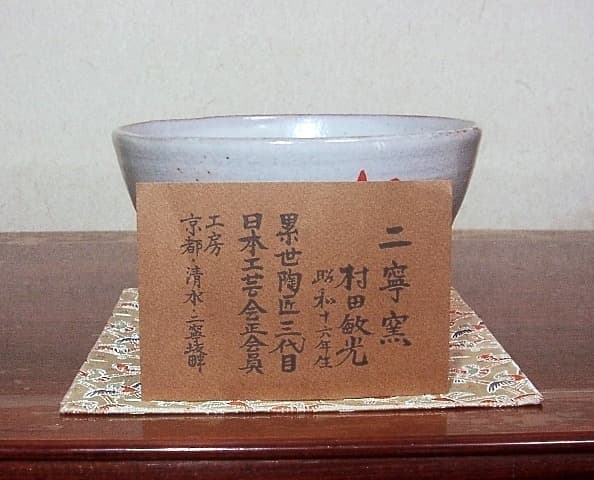 二寧窯
村田敏光
昭和十六年生
累世陶匠三代目
日本工芸会正会員
工房
京都・清水・二寧坂畔